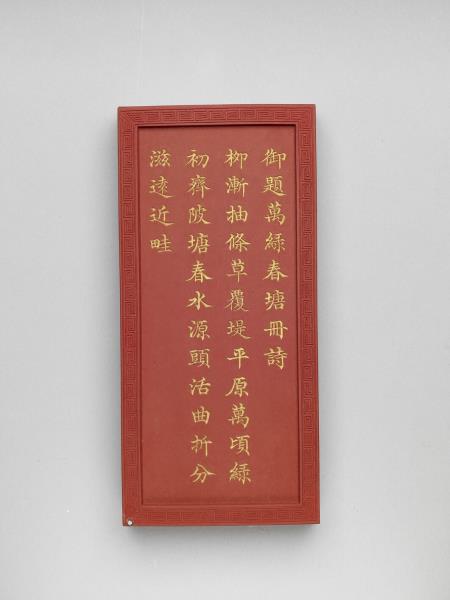 御題萬綠春塘冊詩
柳漸抽條草覆堤平原萬頃綠
初齊陂塘春水源頭活曲折分
滋遠近畦